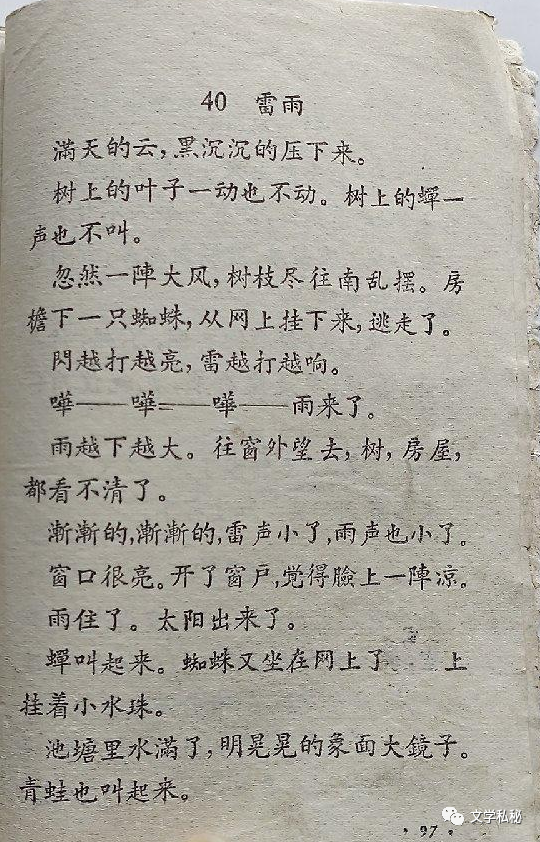 40 雷雨
滿天的云，黑沉沉的压下来。
树上的叶子一动也不动。树上的蟬一
声也不叫。
忽然一陣大风，树枝尽往南乱摆。房
檐下一只蜘蛛，从网上挂下来，逃走了。
閃越打越亮，雷越打越响。
嘩——嘩——嘩——雨来了。
雨越下越大。往窗外望去，树，房屋，
都看不清了。
漸漸的，漸漸的，雷声小了，雨声也小了。
窗口很亮。开了窗戶，觉得臉上一陣凉。
雨住了。太阳出来了。
蟬叫起来。蜘蛛又坐在网上了 上
挂着小水珠。
池塘里水滿了，明晃晃的象面大鏡子。
青蛙也叫起来。
文学私秘
·97·